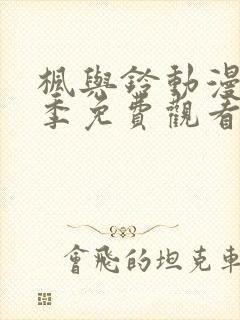 楓與鈴動漫
季免費觀看
會飛的坦克車